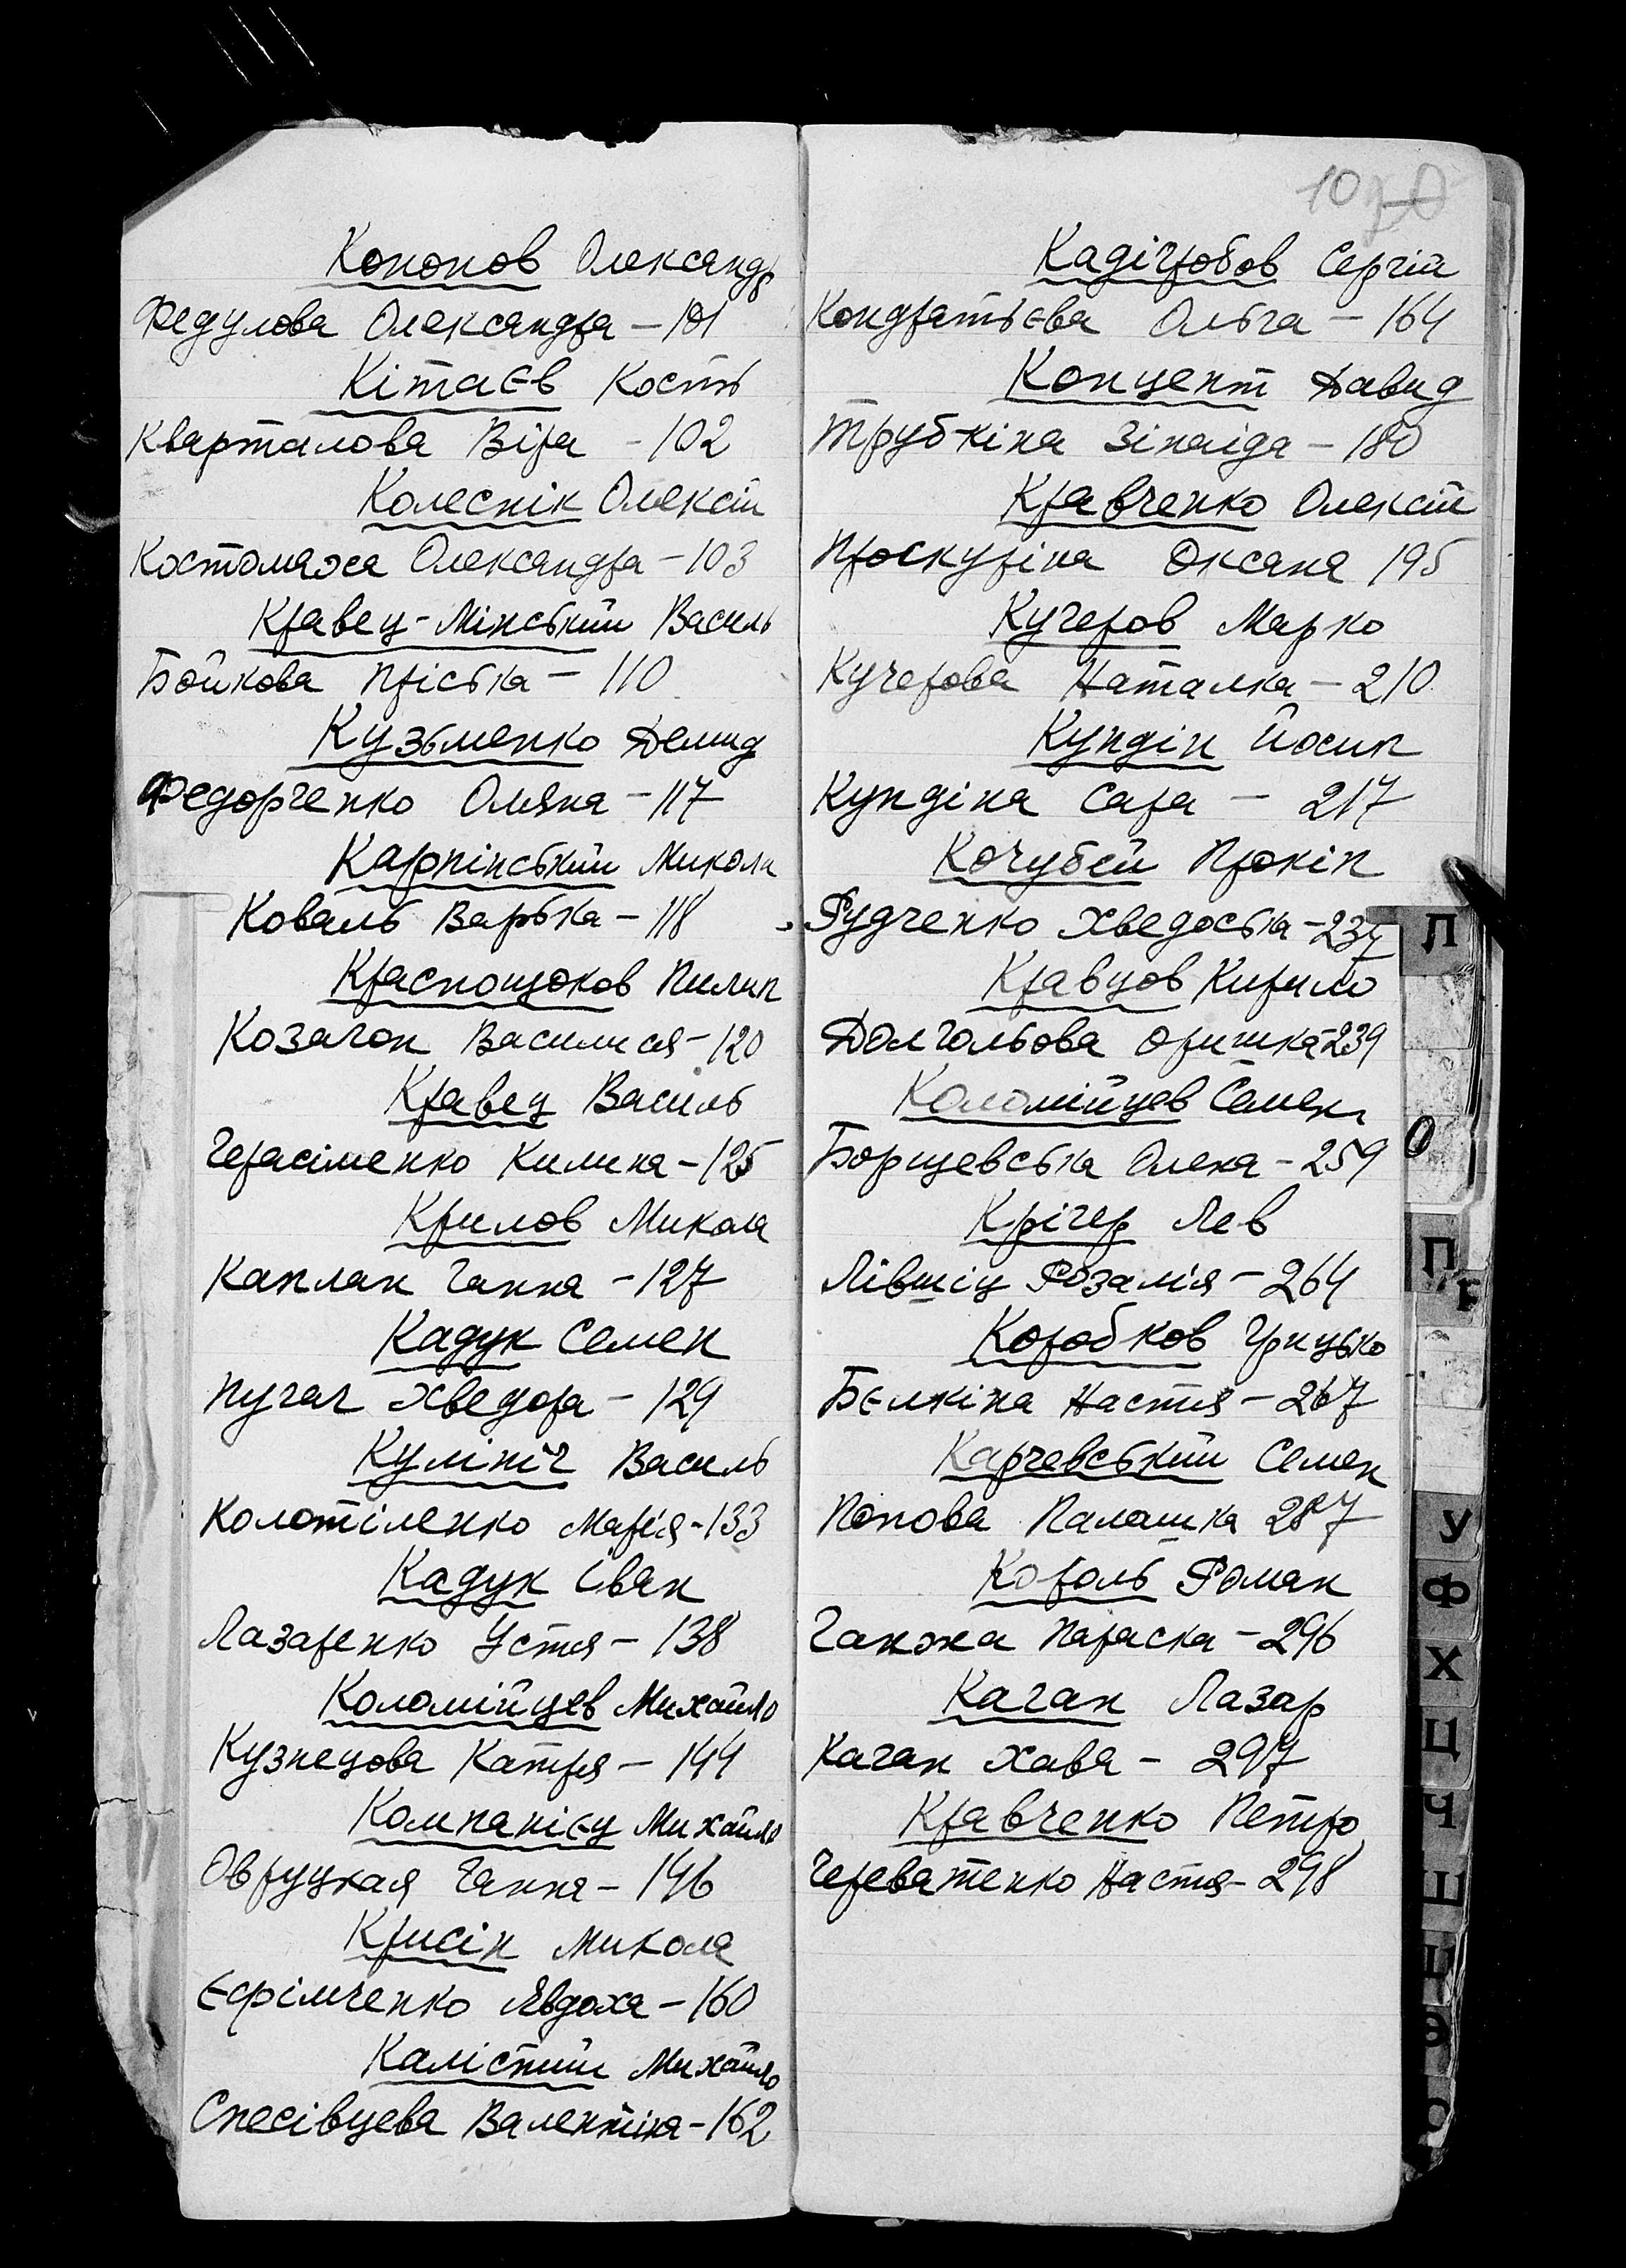 Кононов Олександр
Федулова Олександра – 101
Кітаєв Кость
Кварталова Віра – 102
Колеснік Олексій
Костомаха Олександра – 103
Кравец-Мінський Василь
Бойкова Пріська – 110
Кузьменко Демид
Федорченко Оляна – 117
Карпінський Микола
Коваль Варька – 118
Краснощоков Пилип
Козачок Василися – 120
Кравец Василь
Герасіменко Килина – 125
Крилов Микола
Каплан Ганна – 127
Кадук Семен
Пугач Хведора – 129
Кулініч Василь
Колотіленко Марія – 133
Кадук Іван
Лазаренко Устя – 138
Коломійцев Михайло
Кузнецова Катря – 144
Компанієц Михайло
Овруцкая Ганна – 146
Крисін Микола
Єфімченко Явдоха – 160
Калістий Михайло
Спесівцева Валентіна – 162
Кадігробов Сергій
Кондратьєва Ольга – 164
Концент Давид
Трубкіна Зінаіда – 180
Кравченко Олексій
Проскуріна Оксана 195
Кучеров Марко
Кучерова Наталка – 210
Кундін Йосип
Кундіна Сара – 217
Кочубей Прокіп
Рудченко Хведоська – 237
Кравцов Кирило
Долгольова Оришка – 239
Коломійцев Семен
Борщевська Олена – 259
Крігер Лев
Лівшіц Розалія – 264
Коробков Грицько
Бєлкіна Настя – 267
Карчевський Семен
Попова Палашка 287
Король Роман
Ганжа Параска – 296
Каган Лазар
Каган Хава – 297
Кравченко Петро
Череватенко Настя – 298
Л
О
П
У
Ф
Х
Ц
Ч